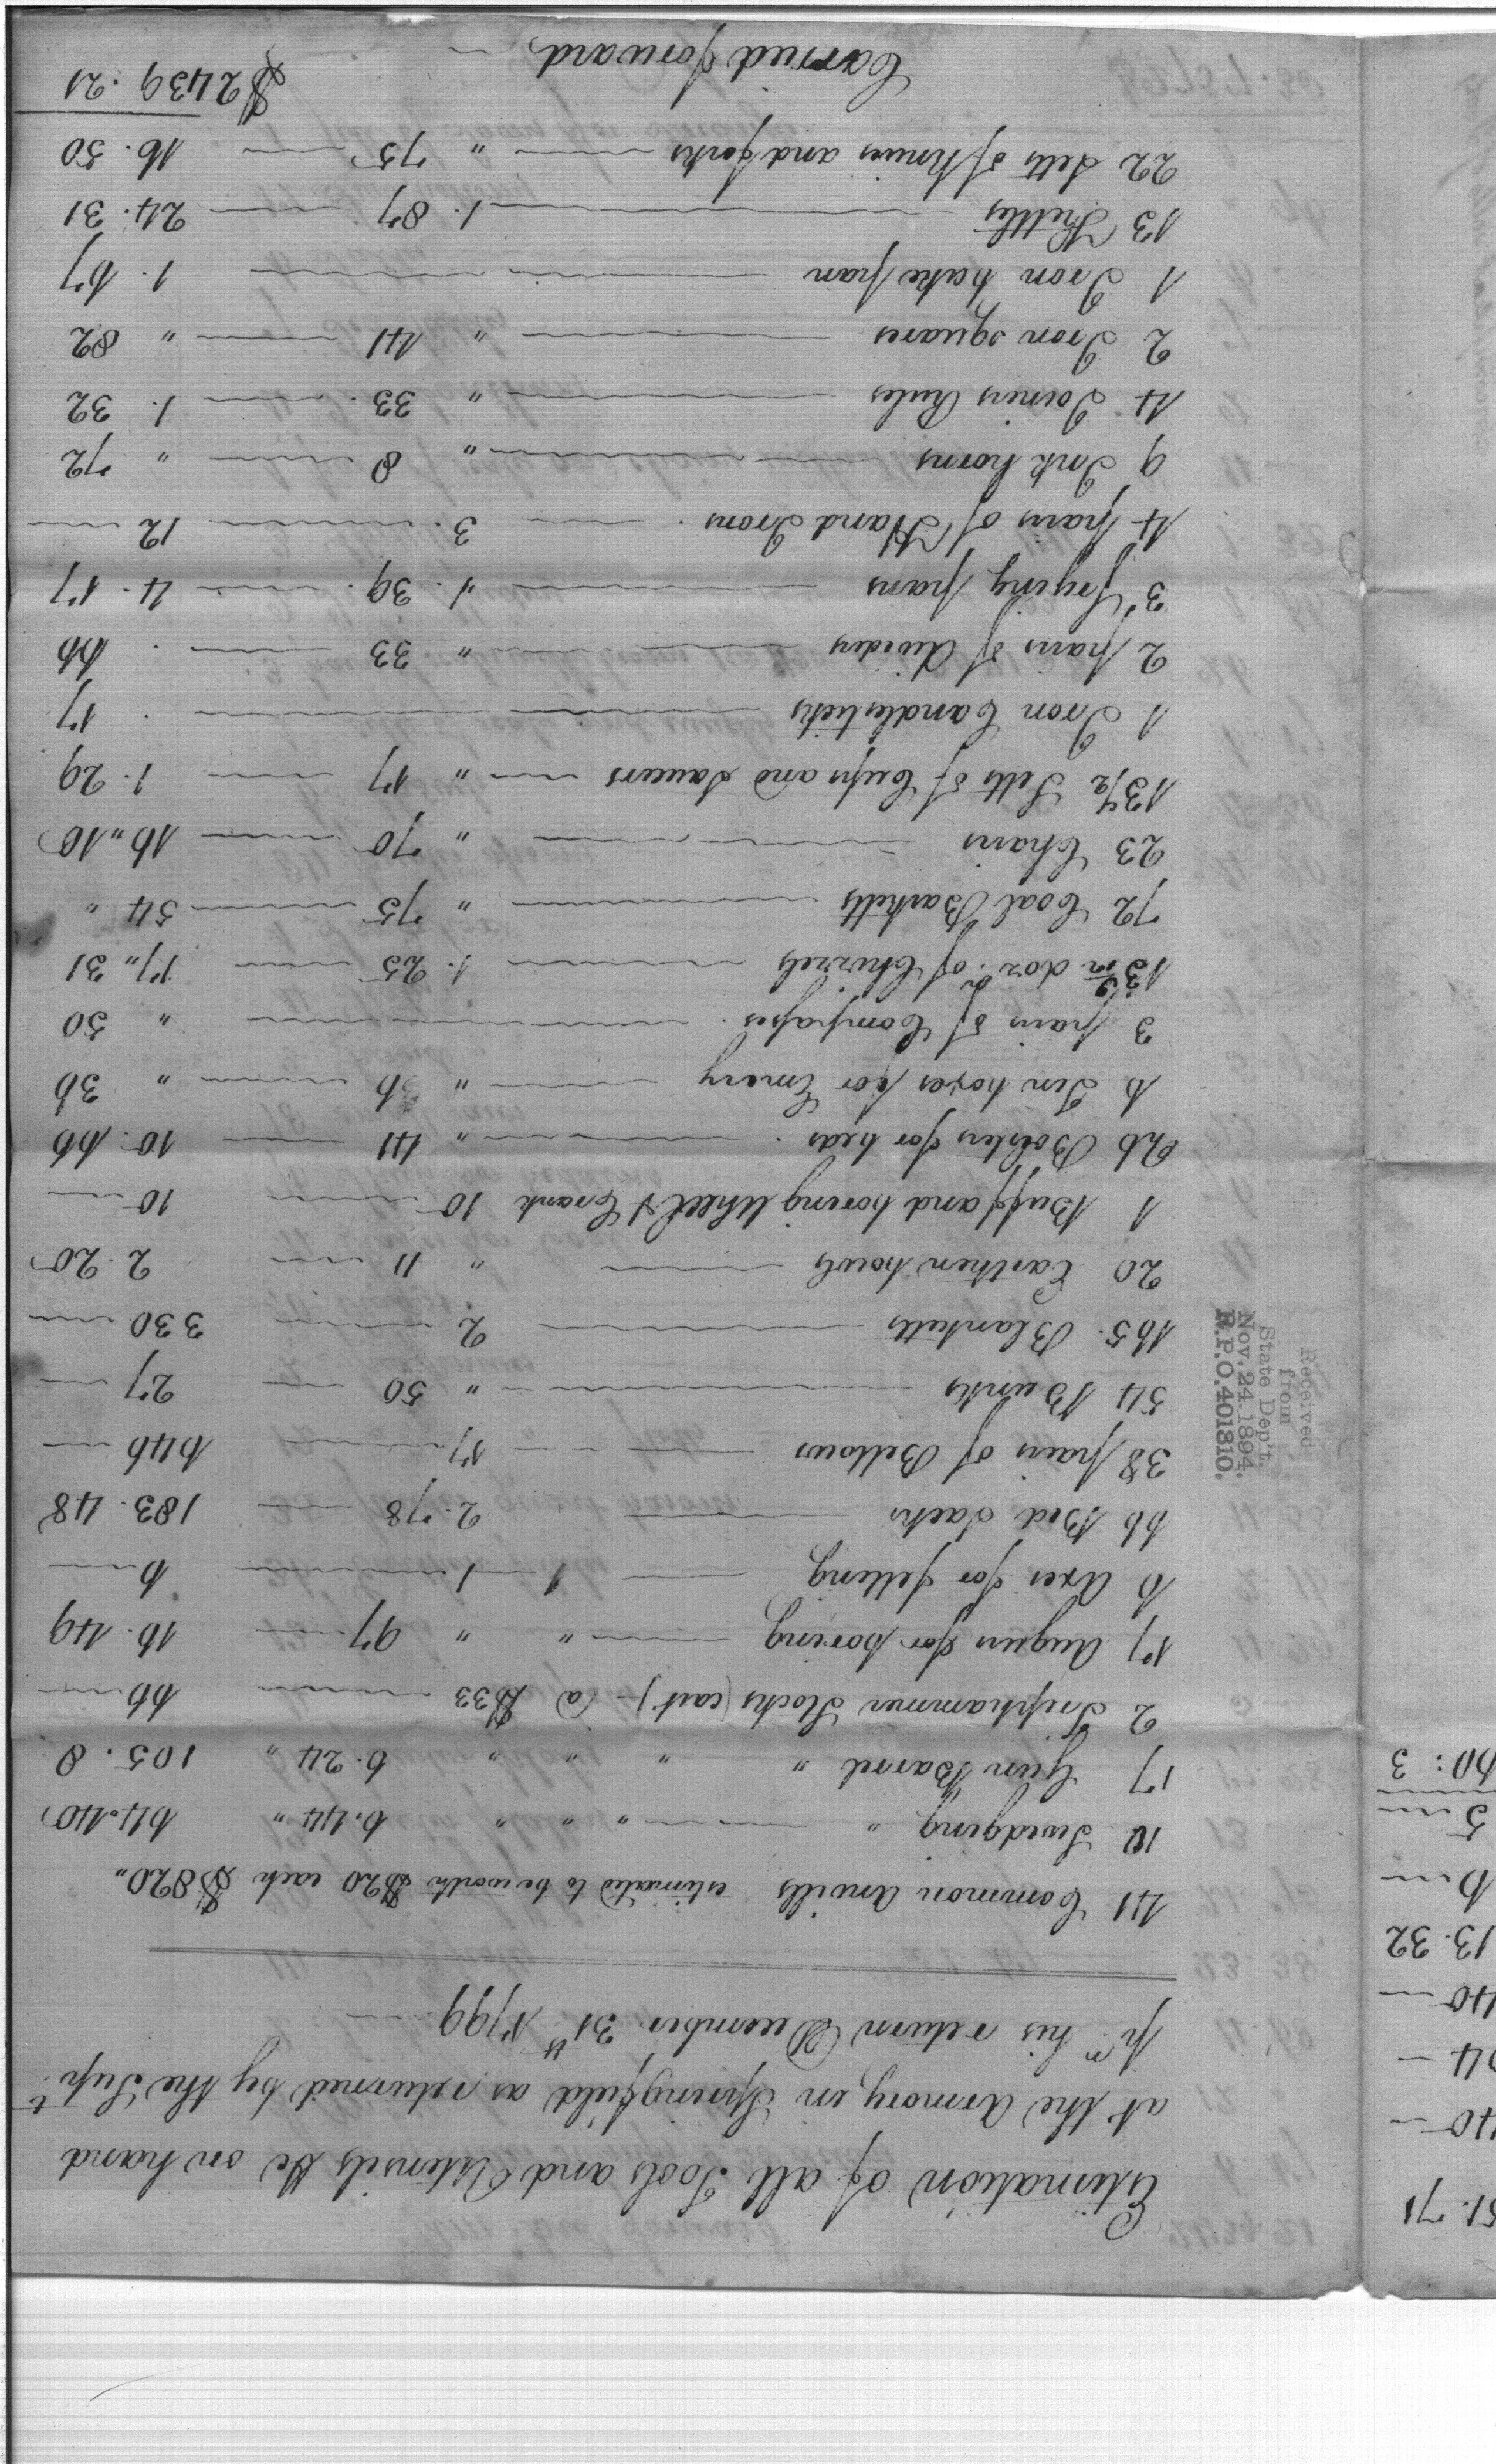 Estimation of all Tools and Utensils &c on hand
at the Armory in Springfield as returned by the Supt.
pr. his return December 31st 1799
41 Common Anvils estimated to be worth $20 each $820 "
10 Swedging " — " " " 6.44 " 64.40
17 Gun Barrel " " " " 6.24 " 105.8
2 Triphammer Stocks (cast) - @ $33 — 66 —
17 Augurs for boring — " " 97 — 16.49
6 Axes for felling — 1 — 6 —
66 Bed Sacks — 2.78 — 183.48
38 pairs of Bellows — 17 — 646 —
54 Bunks — " 50 — 27 —
165 Blanketts — 2 — 330 —
20 Earthen bowls — " 11 — 2.20
1 Buff and boring Wheel & Crank 10 — 10 —
26 Bolsters for beds — " 41 — 10.66
6 Tin boxes for Emery — " 6 — " 36
3 pairs of Compasses — " 50
13 10/12 doz. of Chizzels — 1.25 — 17.31
72 Coal Basketts — " 75 — 54 "
23 Chairs — " 70 — 16.10
13 1/2 Setts of Cups and Saucers — " 17 — 1.29
1 Iron Candlestick — . 17
2 pairs of dividers — " 33 — . 66
3 frying pans — 1.39 — 4.17
4 pairs of Hand Irons — 3. — 12 —
9 Ink horns — " 8 — " 72
4 Joiners Rules — " 33 — 1.32
2 Iron squares — " 41 — " 82
1 Iron bake pan — 1.67
13 Kettles — 1.87 — 24.31
22 Setts of knives and forks — " 75 — 16.50
Carried forward — $2439.21
Received
from
State Dep't.
Nov. 24. 1894.
R.P.O. 401810.
51.71
40 —
40 —
13.32
6 —
5 —
60:3